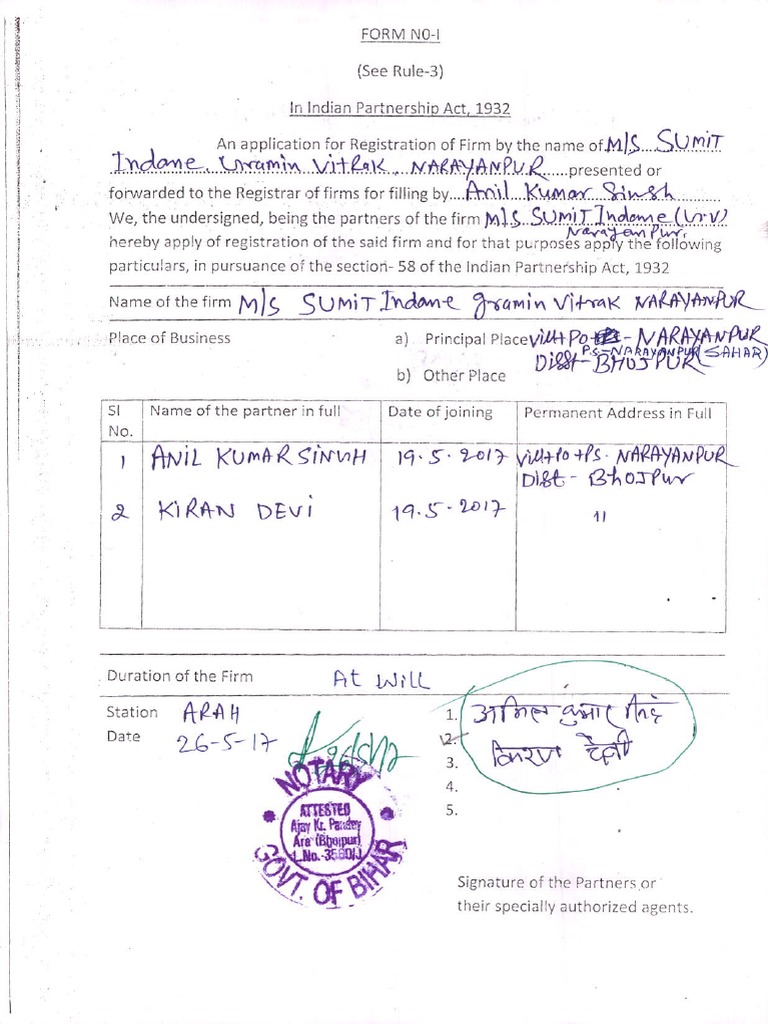 FORM NO-I
(See Rule-3)
In Indian Partnership Act, 1932
An application for Registration of Firm by the name of M/S SUMIT
Indane Gramin Vitrak NARAYANPUR presented or
forwarded to the Registrar of firms for filling by Anil Kumar Singh
We, the undersigned, being the partners of the firm M/S SUMIT Indane (G.V)
Narayanpur.
hereby apply of registration of the said firm and for that purposes apply the following
particulars, in pursuance of the section- 58 of the Indian Partnership Act, 1932
Name of the firm M/S SUMIT Indane gramin vitrak NARAYANPUR
Place of Business a) Principal Place Vill+Po - NARAYANPUR
P.S-NARAYANPUR (SAHAR)
Distt- BHOJPUR
b) Other Place
Sl No. Name of the partner in full Date of joining Permanent Address in Full
1 ANIL KUMAR SINGH 19.5.2017 Vill+Po+Ps. NARAYANPUR
Distt- BHOJPUR
2 KIRAN DEVI 19.5.2017 11
Duration of the Firm At Will
Station ARAH
Date 26-5-17
1. अनिल कुमार सिंह
2. किरण देवी
3.
4.
5.
NOTARY
ATTESTED
Ajay Kr. Pandey
Ara (Bhojpur)
GOVT. OF BIHAR
Signature of the Partners or
their specially authorized agents.